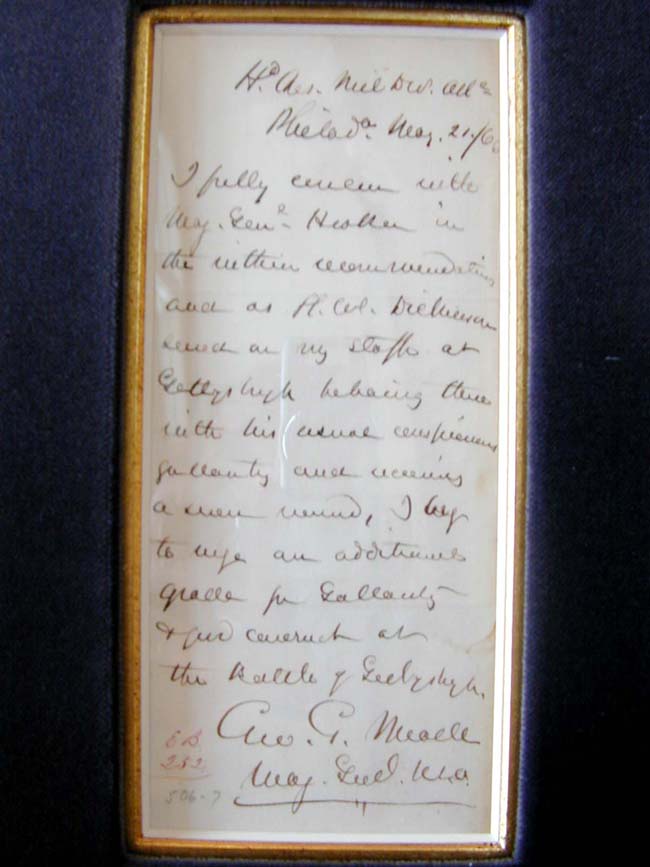 Hd Qrs. Mil Div. Atlc
Philada. May. 21./66
I fully concur with
Maj. Genl. Hooker in
the within recommendation
and as Lt. Col. Dickinson
served on my staff at
Gettysburgh behaving there
with his usual conspicuous
gallantry and receiving
a severe wound, I beg
to urge an additional
grade for Gallantry
& good conduct at
the Battle of Gettysburgh.
Geo. G. Meade
Maj. Genl. U.S.A.
EB
252
506-7